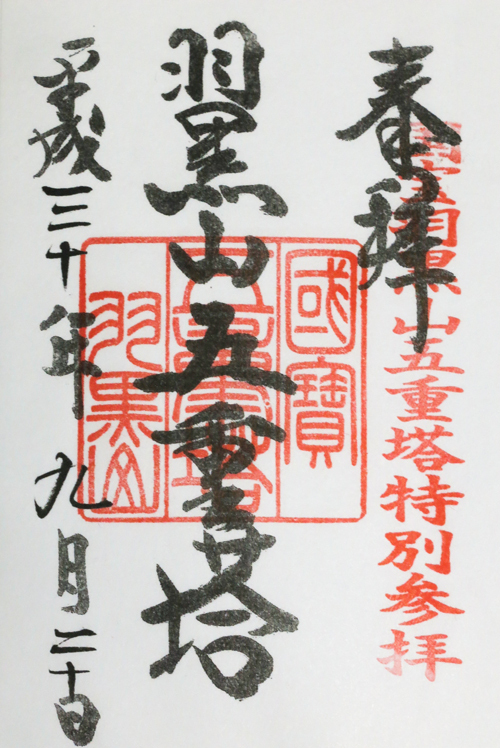 奉拝
国宝羽黒山五重塔特別参拝
羽黒山五重塔
國寶
五重塔
羽黒山
平成三十年九月二十日